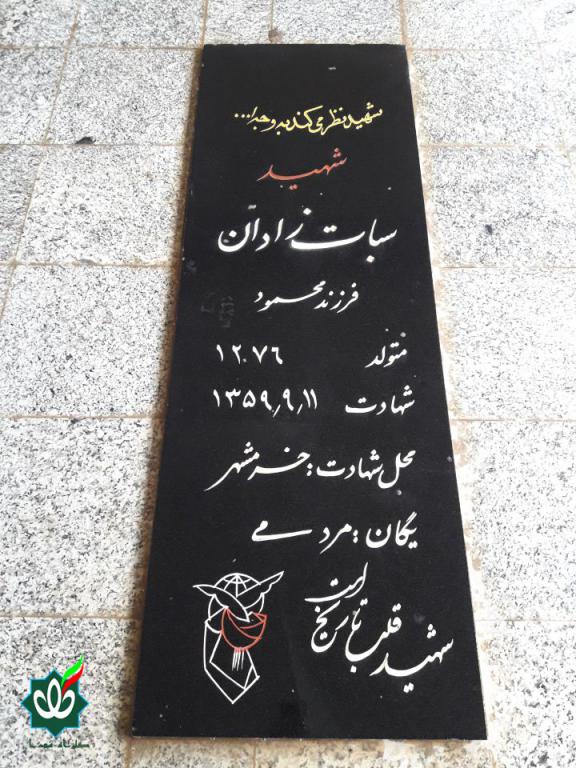 شهید نظر می کند به وجه ا...
شهید
سبات زادان
فرزند محمود
متولد ۱۲۷۶
شهادت ۱۳۵۹٫۹٫۱۱
محل شهادت : خرمشهر
یگان : مردمی
شهید قلب تاریخ است